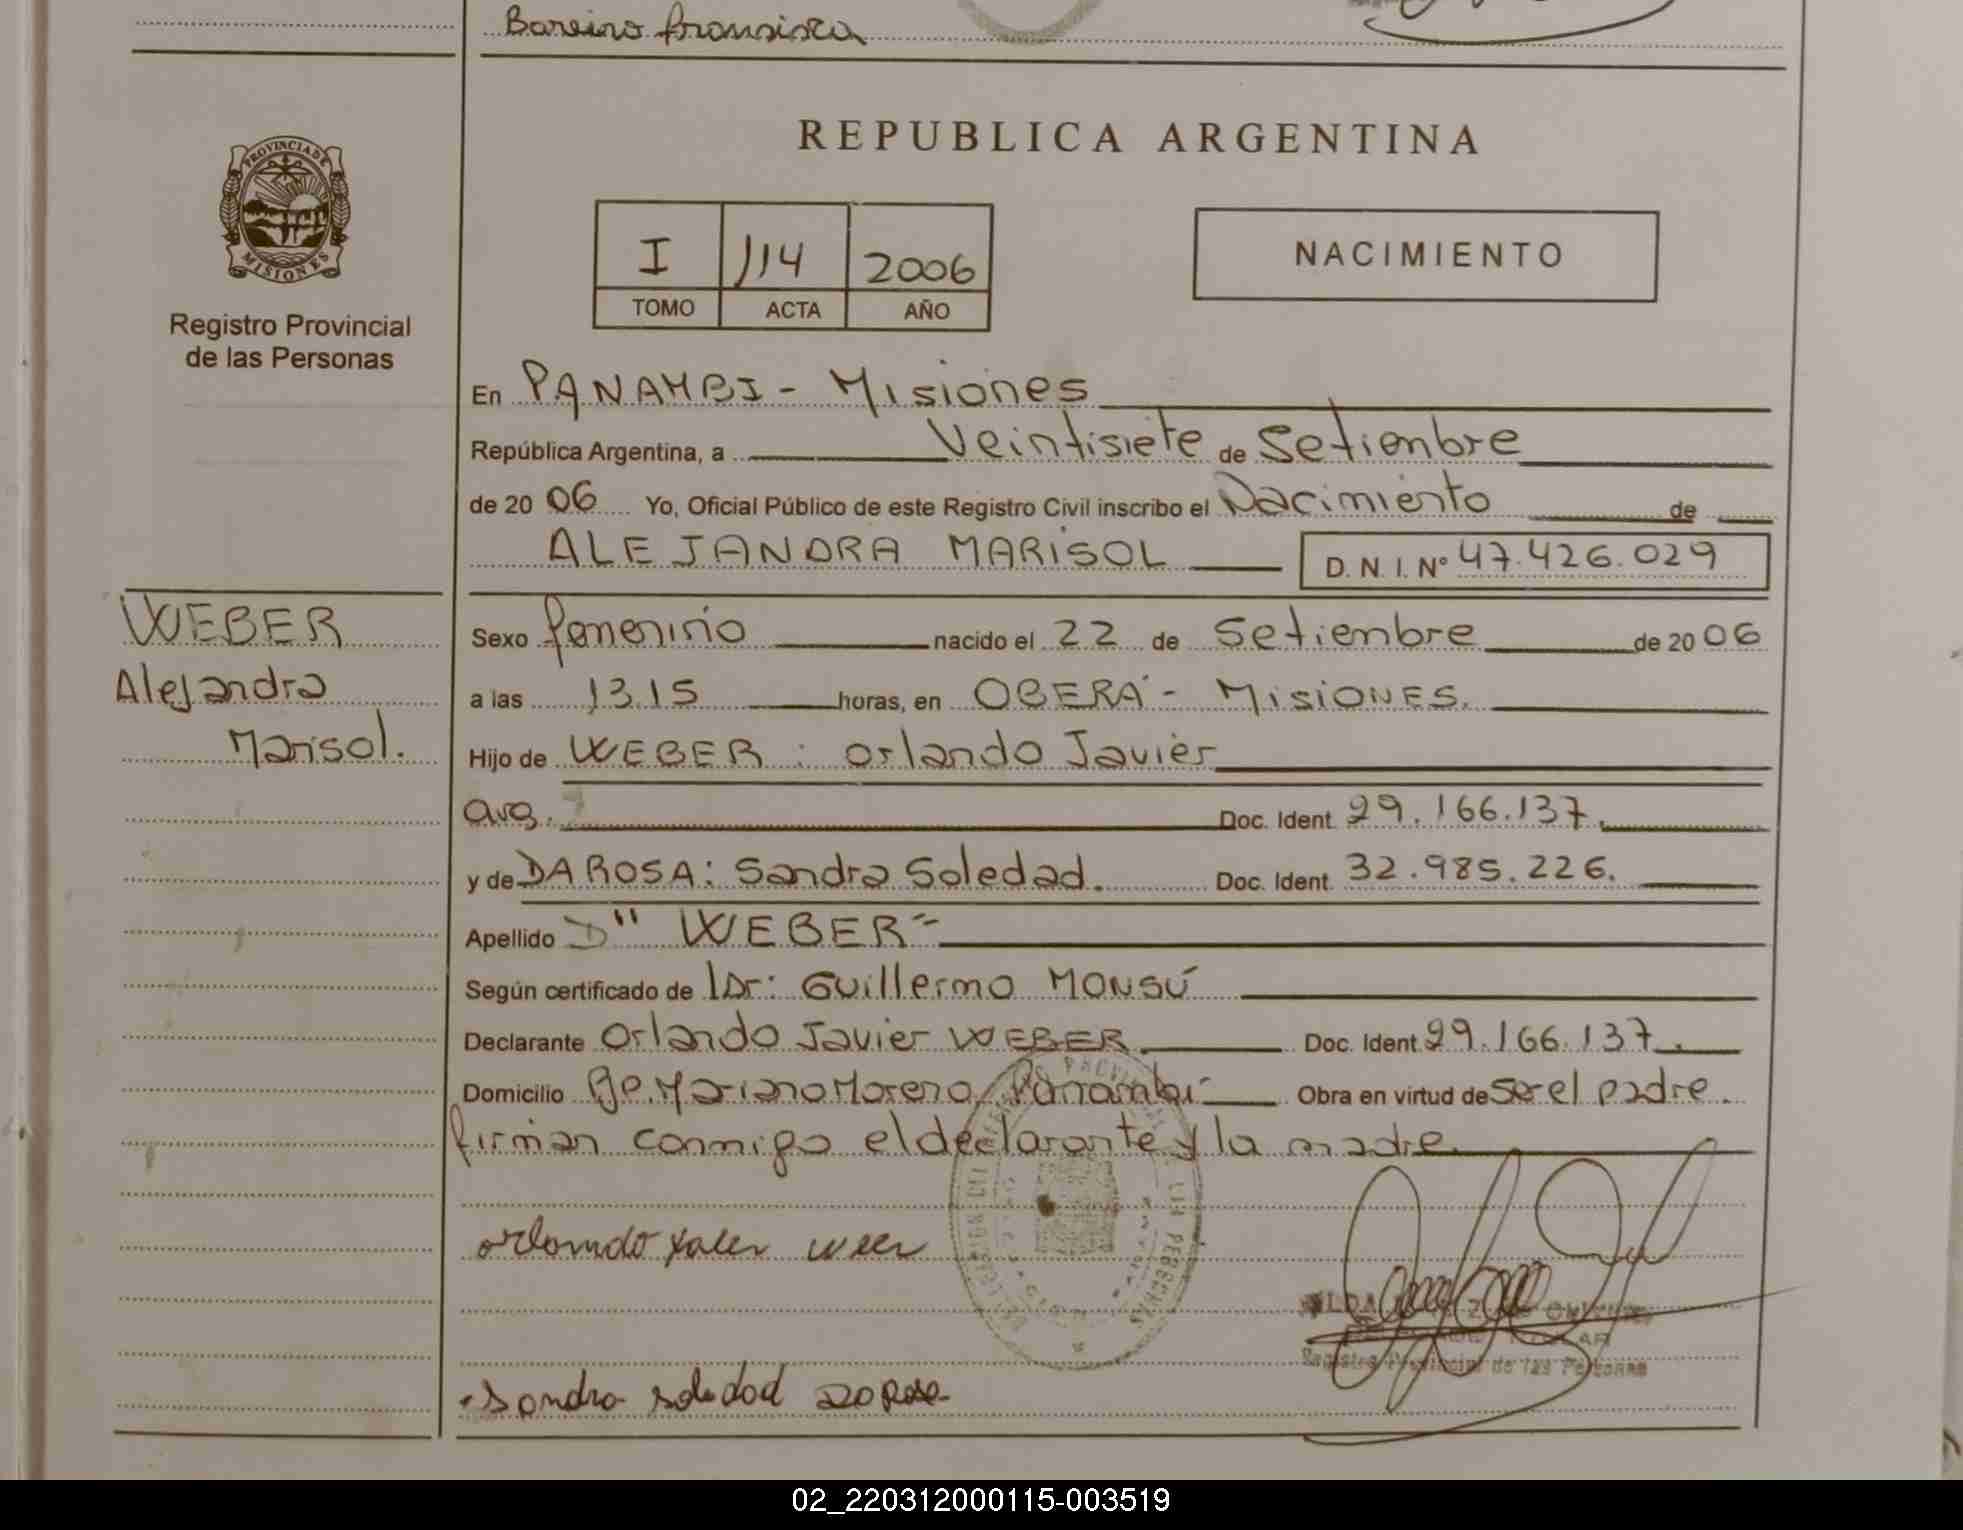 Bareiro Fransisca
REPUBLICA ARGENTINA
PROVINCIA DE
MISIONES
Registro Provincial
de las Personas
I 114 2006
TOMO ACTA AÑO
NACIMIENTO
En PANAMBI - Misiones
República Argentina, a Veintisiete de Setiembre
de 20 06 Yo, Oficial Público de este Registro Civil inscribo el Nacimiento de
ALEJANDRA MARISOL D. N. I. Nº 47.426.029
WEBER
Alejandra
Marisol.
Sexo femenino nacido el 22 de Setiembre de 20 06
a las 13.15 horas, en OBERÁ - MISIONES.
Hijo de WEBER : Orlando Javier
arg. Doc. Ident. 29.166.137.
y de DA ROSA: Sandra Soledad. Doc. Ident. 32.985.226.
Apellido D" WEBER"
Según certificado de Dr: Guillermo MONSÚ
Declarante Orlando Javier WEBER Doc. Ident. 29.166.137.
Domicilio Mariano Moreno Panambí Obra en virtud de ser el padre.
firman conmigo el declarante y la madre.
Registro Provincial de las Personas
sandra soledad
02_220312000115-003519